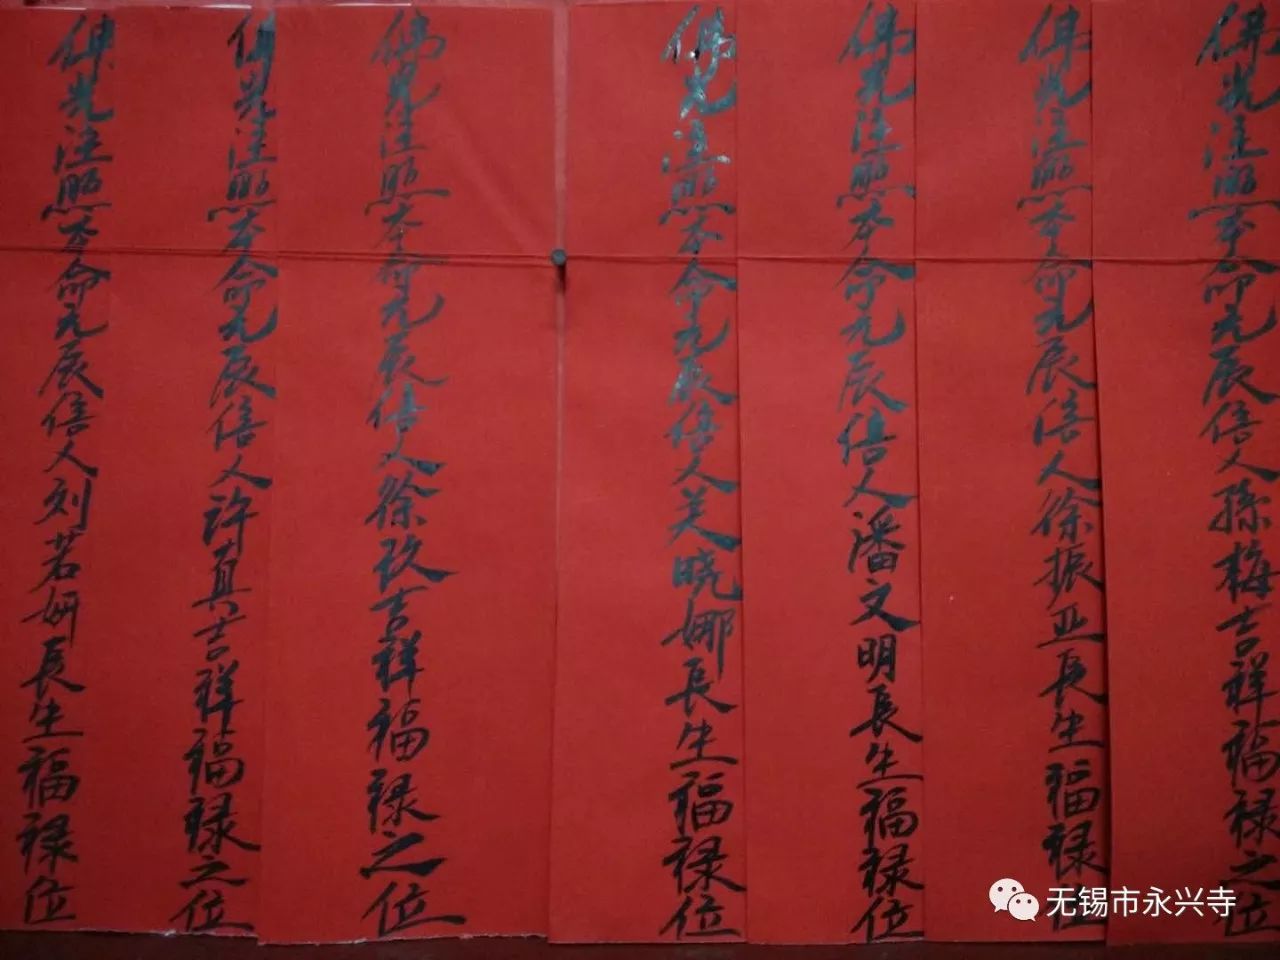 佛光注照本命元辰信人孫梅吉祥福禄之位
佛光注照本命元辰信人徐振亚長生福禄位
佛光注照本命元辰信人潘文明長生福禄位
佛光注照本命元辰信人关晓娜長生福禄位
佛光注照本命元辰信人徐玖吉祥福禄之位
佛光注照本命元辰信人许真吉祥福禄之位
佛光注照本命元辰信人刘若妍長生福禄位
无锡市永兴寺